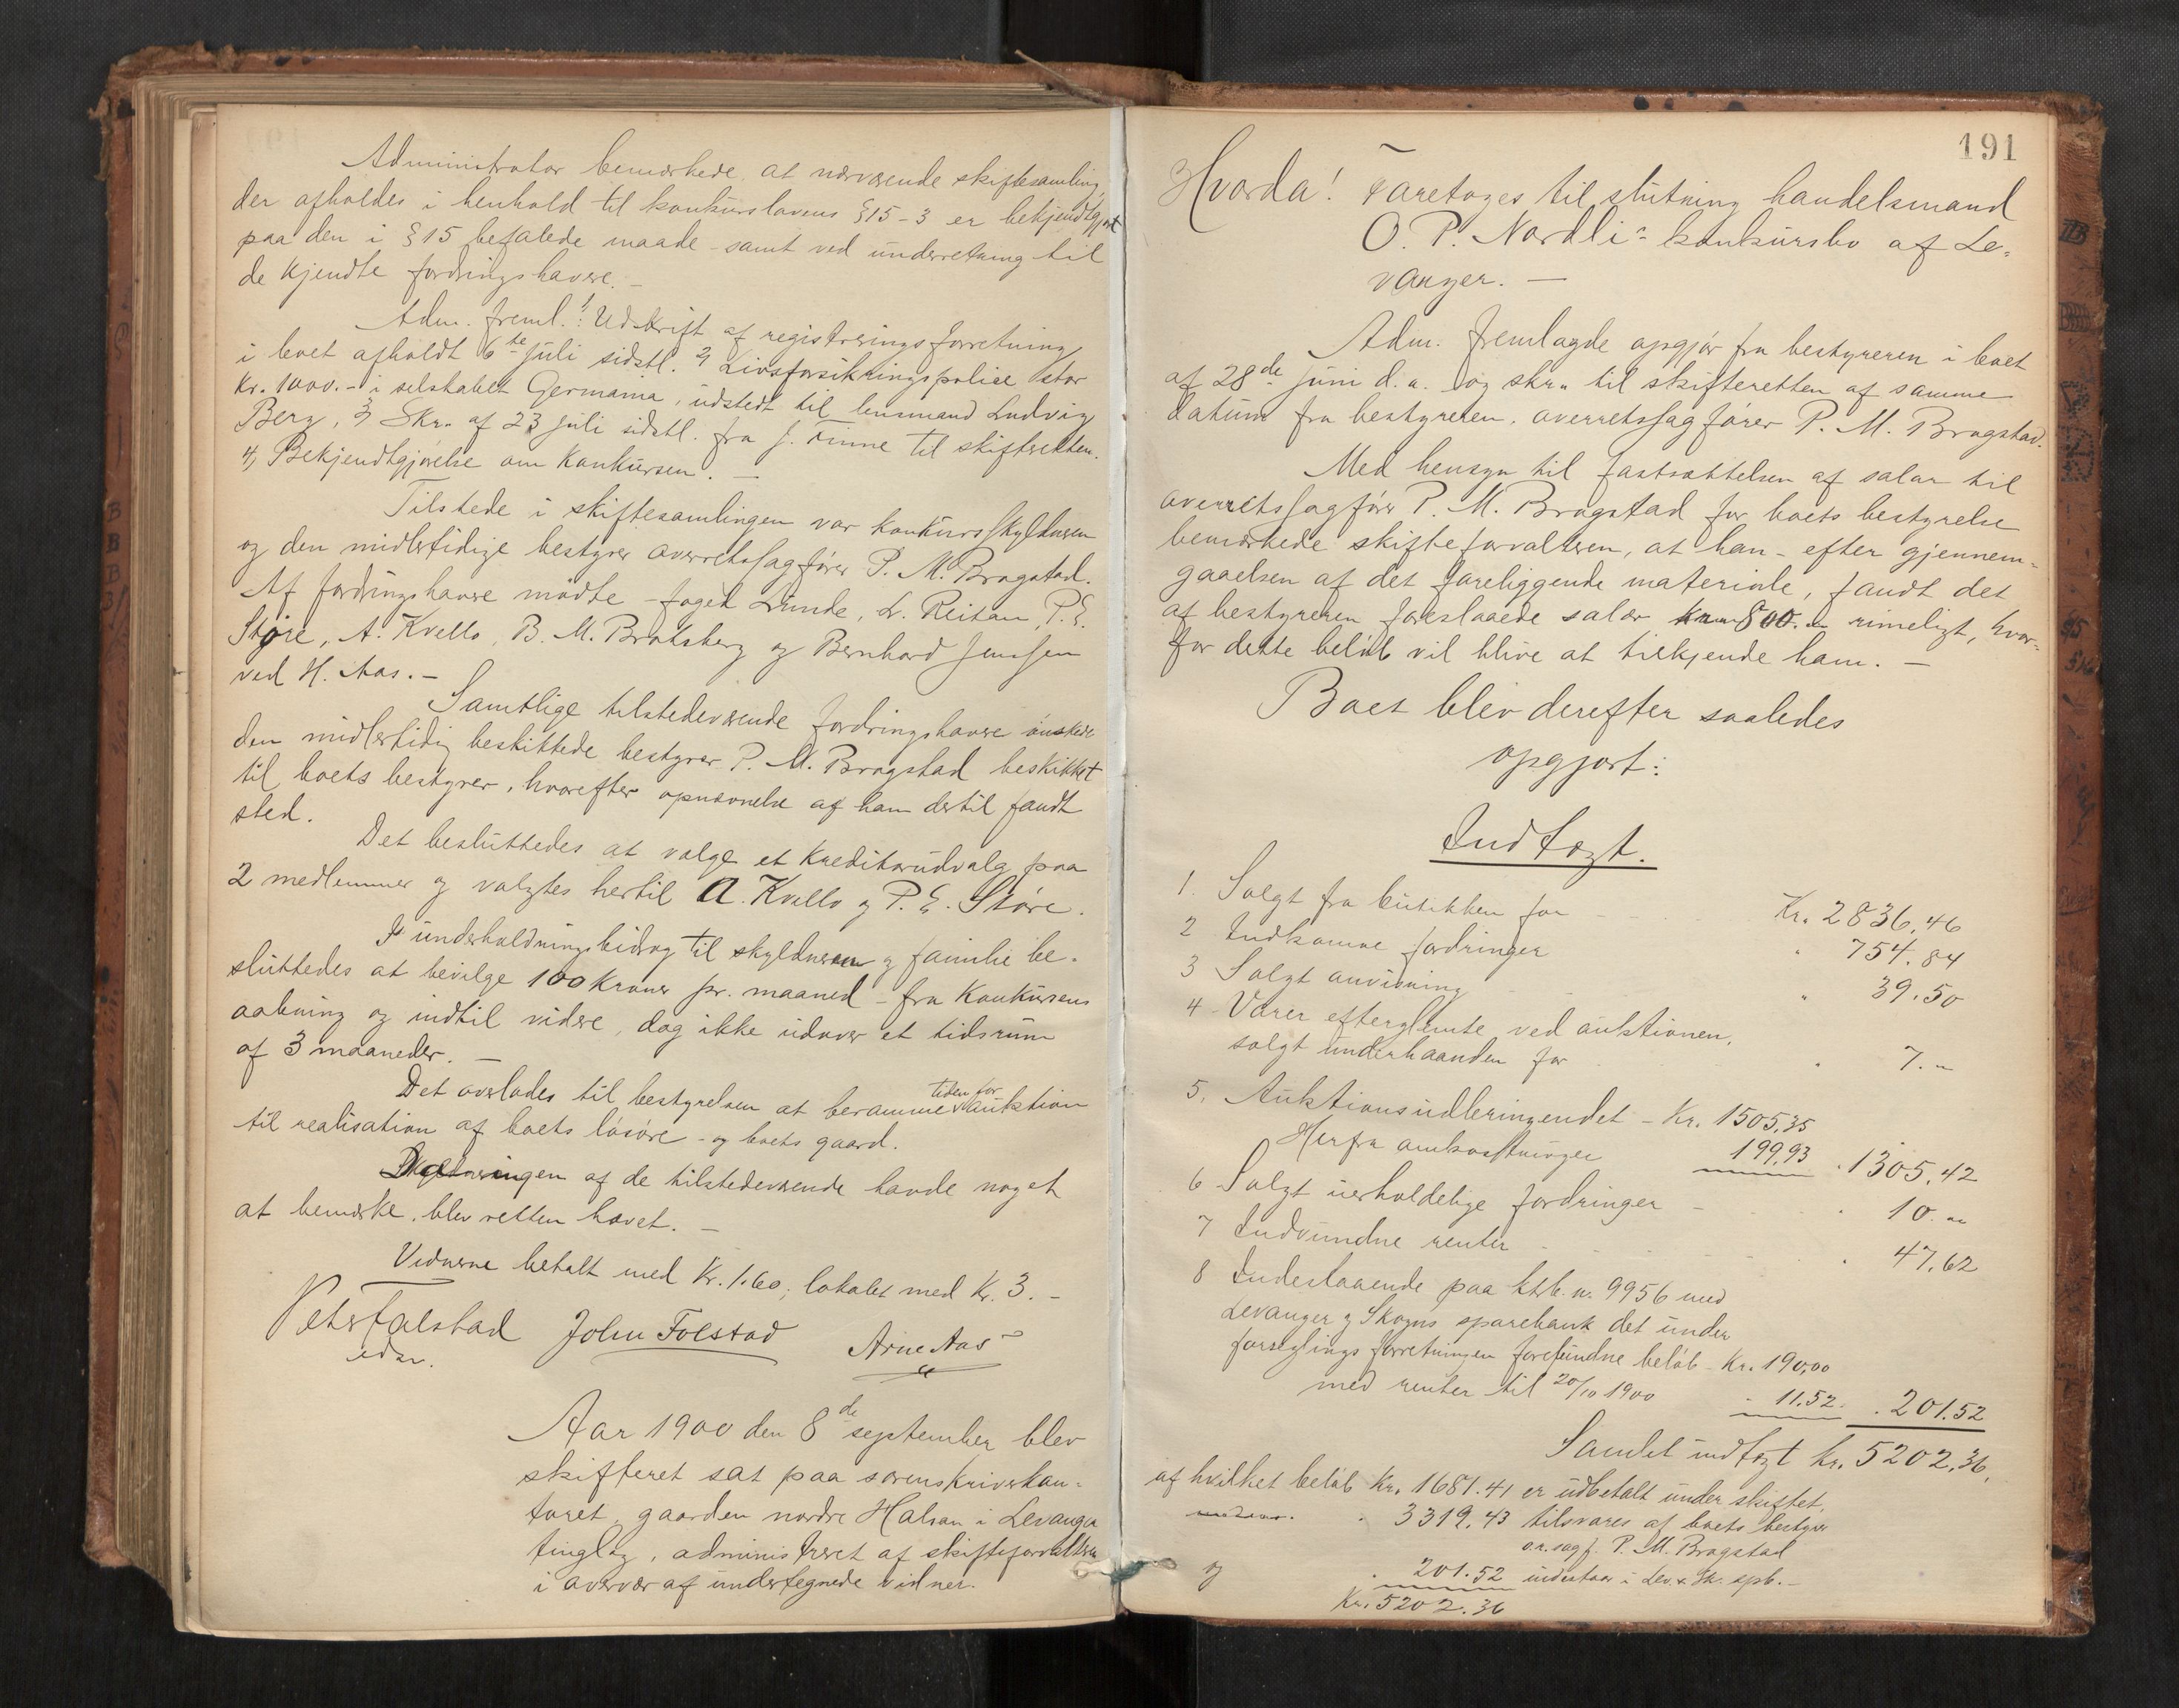 Administrator bemærkede at nærværende skiftesamling,
der afholdes i henhold til konkurslovens § 15-3 er bekjendtgjort
paa den i § 15 befalede maade - samt ved underretning til
de kjendte fordringshavere. -
Adm. freml. 1, Udskrift af registreringsforretning
i boet afholdt 6te juli sidstl. 2, Livsforsikringspolice stor
Kr. 1000.- i selskabet Germania, udstedt til lensmand Ludvig
Berg, 3, Skr. af 23 juli sidstl. fra J. Finne til skifteretten.
4, Bekjendtgjørelse om Konkursen. -
Tilstede i skiftesamlingen var konkursskyldneren
og den midlertidige bestyrer overretssagfører P. M. Bragstad.
Af fordringshavere mødte - foged Lunde, L. Reitan, P. E.
Støre, A. Kvello, B. M. Bratsberg og Bernhard Jenssen
ved H. Aas. -
Samtlige tilstedeværende fordringshavere ønskede
den midlertidig beskikkede bestyrer P. M. Bragstad beskikket
til boets bestyrer, hvorefter opnævnelse af ham dertil fandt
sted.
Det besluttedes at vælge et Kreditorudvalg paa
2 medlemmer og valgtes hertil A. Kvello og P. E. Støre.
I underholdningsbidrag til skyldneren og familie be-
sluttedes at bevilge 100 Kroner pr. maaned - fra Konkursens
aabning og indtil videre, dog ikke udover et tidsrum
af 3 maaneder. -
Det overlodes til bestyrelsen at beramme tiden for auktion
til realisation af boets løsøre - og boets gaard.
Da ingen af de tilstedeværende havde noget
at bemærke, blev retten hævet. -
Vidnerne betalt med Kr. 1.60; lokalet med Kr. 3. -
Peter Falstad John Folstad Arne Aas
edsv.
Aar 1900 den 8de september blev
skifteret sat paa sorenskriverkon-
toret, gaarden nordre Halsan i Levanger
tinglag, administreret af skifteforvalteren
i overvær af undertegnede vidner.
191
Hvorda! Foretoges til slutning handelsmand
O. P. Nordli's konkursbo af Le-
vanger. -
Adm. fremlagde opgjør fra bestyreren i boet
af 28de juni d. a. og skr. til skifteretten af samme
datum fra bestyreren, overretssagfører P. M. Bragstad.
Med hensyn til fastsættelsen af salær til
overretssagfører P. M. Bragstad for boets bestyrelse
bemærkede skifteforvalteren, at han - efter gjennem-
gaaelsen af det foreliggende materiale, fandt det
af bestyreren foreslaaede salær kr. 800.- rimeligt, hvor-
for dette beløb vil blive at tilkjende ham. -
Boet blev derefter saaledes
opgjort:
Indtægt.
1. Solgt fra butikken for Kr. 2836,46
2 Indkomne fordringer " 754.84
3 Solgt anvisning " 39.50
4 Varer efterglemte ved auktionen,
solgt underhaanden for " 7.-
5. Auktionsudbringendet - Kr. 1505,35
Herfra omkostninger 199.93 . 1305,42
6 Solgt uerholdelige fordringer - " 10.-
7 Indvundne renter " 47,62
8 Indestaaende paa ktrb. n. 9956 med
Levanger og Skogns sparebank det under
forseglingsforretningen forefundne beløb - Kr. 190,00
med renter til 20/10 1900 - 11.52. . 201.52
Samlet indtægt kr. 5202,36,
af hvilket beløb Kr. 1681.41 er udbetalt under skiftet,
" 3319,43 tilsvares af boets bestyrer
o.r.sagf. P. M. Bragstad
og " 201.52 indestaar i Lev. & Sk. spb. -
Kr. 5202.36